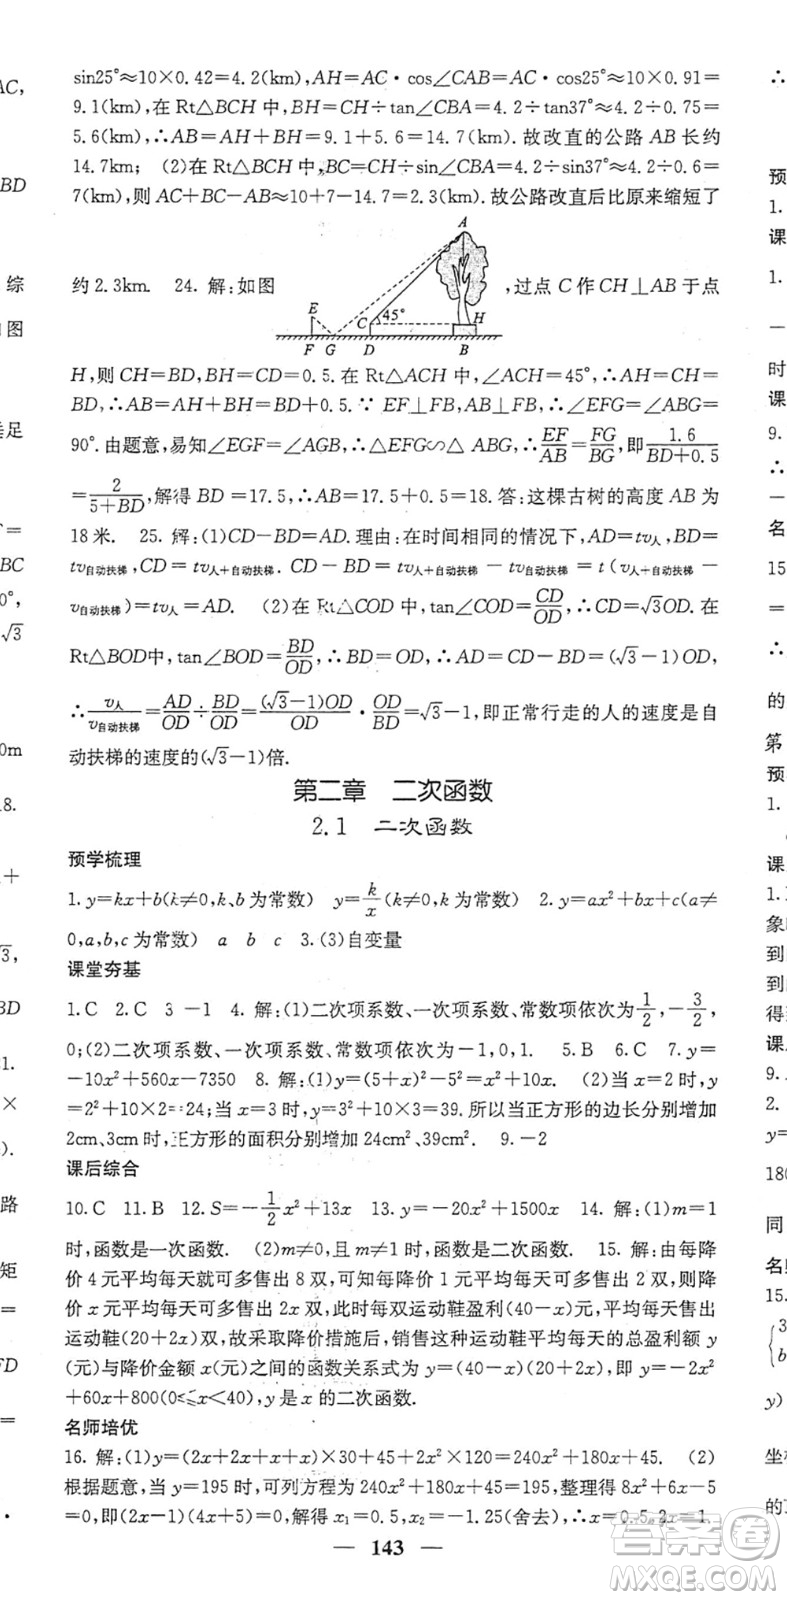 sin25°≈10×0.42=4.2(km),AH=AC·cos∠CAB=AC·cos25°≈10×0.91=
9.1(km).在 Rt△BCH 中,BH=CH÷tan∠CBA=4.2÷tan37°≈4.2÷0.75=
5.6(km),∴AB=AH+BH=9.1+5.6=14.7(km).故改直的公路 AB 长约
14.7km; (2)在 Rt△BCH 中,BC=CH÷sin∠CBA=4.2÷sin37°≈4.2÷0.6=
7(km),则 AC+BC-AB≈10+7-14.7=2.3(km).故公路改直后比原来缩短了
约2.3km. 24. 解:如图 ,过点 C 作 CH⊥AB 于点
A
E
C 45° H
F G D B
H,则 CH=BD,BH=CD=0.5.在 Rt△ACH 中,∠ACH=45°,∴AH=CH=
BD,∴AB=AH+BH=BD+0.5.∵ EF⊥FB,AB⊥FB,∴∠EFG=∠ABG=
90°.由题意,易知∠EGF=∠AGB,∴△EFG∽△ABG,∴EF/AB=FG/BG,即1.6/(BD+0.5)
=2/(5+BD),解得 BD=17.5,∴AB=17.5+0.5=18.答:这棵古树的高度 AB 为
18米. 25. 解:(1)CD-BD=AD.理由:在时间相同的情况下,AD=tv人,BD=
tv自动扶梯,CD=tv人+自动扶梯.CD-BD=tv人+自动扶梯-tv自动扶梯=t(v人+自动扶梯-
v自动扶梯)=tv人=AD. (2)在 Rt△COD 中,tan∠COD=CD/OD,∴CD=√3OD.在
Rt△BOD中,tan∠BOD=BD/OD,∴BD=OD,∴AD=CD-BD=(√3-1)OD,
∴v人/v自动扶梯=AD/OD÷BD/OD=(√3-1)OD/OD·OD/BD=√3-1,即正常行走的人的速度是自
动扶梯的速度的(√3-1)倍.
第二章 二次函数
2.1 二次函数
预学梳理
1.y=kx+b(k≠0,k、b 为常数) y=k/x(k≠0,k 为常数) 2.y=ax²+bx+c(a≠
0,a,b,c 为常数) a b c 3.(3)自变量
课堂夯基
1.C 2.C 3 -1 4. 解:(1)二次项系数、一次项系数、常数项依次为1/2,-3/2,
0;(2)二次项系数、一次项系数、常数项依次为-1,0,1. 5.B 6.C 7.y=
-10x²+560x-7350 8. 解:(1)y=(5+x)²-5²=x²+10x. (2)当x=2时,y
=2²+10×2=24;当x=3时,y=3²+10×3=39.所以当正方形的边长分别增加
2cm、3cm 时,正方形的面积分别增加24cm²、39cm². 9.-2
课后综合
10.C 11.B 12.S=-1/2x²+13x 13.y=-20x²+1500x 14. 解:(1)m=1
时,函数是一次函数. (2)m≠0,且m≠1时,函数是二次函数. 15. 解:由每降
价4元平均每天就可多售出8双,可得每降价1元平均每天可多售出2双,则降
价x元平均每天可多售出2x双,此时每双运动鞋盈利(40-x)元,平均每天售出
运动鞋(20+2x)双,故采取降价措施后,销售这种运动鞋平均每天的总盈利额y
(元)与降价金额x(元)之间的函数关系式为y=(40-x)(20+2x),即y=-2x²
+60x+800(0≤x<40),y是x的二次函数.
名师培优
16. 解:(1)y=(2x+2x+x+x)×30+45+2x²×120=240x²+180x+45. (2)
根据题意,当y=195时,可列方程为240x²+180x+45=195,整理得8x²+6x-5
=0,即(2x-1)(4x+5)=0,解得x₁=0.5,x₂=-1.25(舍去),∴x=0.5,2x=1.
— 143 —